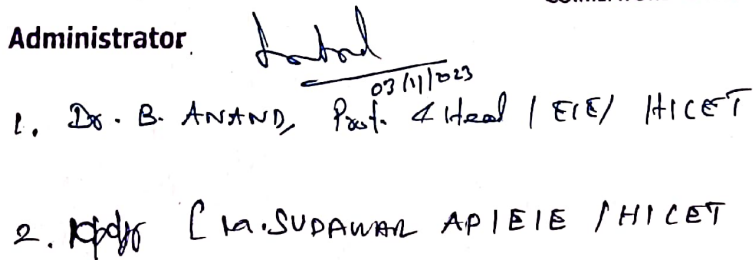 Administrator
03/11/2023
1. Dr. B. ANAND, Prof. & Head / EIE / HICET
2. [M. SUDAWAR AP/EIE / HICET